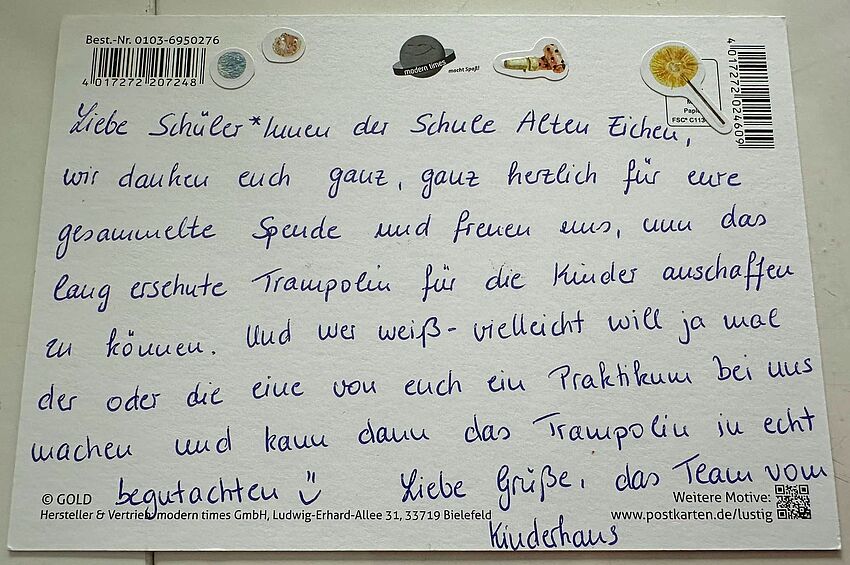 Best.-Nr. 0103-6950276
4 017272 207248
modern times
macht Spaß!
Papie
FSC® C113
4 017272 024609
Liebe Schüler*Innen der Schule Alten Eichen,
wir danken euch ganz, ganz herzlich für eure
gesammelte Spende und freuen uns, nun das
lang ersehnte Trampolin für die Kinder anschaffen
zu können. Und wer weiß - vielleicht will ja mal
der oder die eine von euch ein Praktikum bei uns
machen und kann dann das Trampolin in echt
begutachten Liebe Grüße, das Team vom
Kinderhaus
© GOLD
Hersteller & Vertrieb: modern times GmbH, Ludwig-Erhard-Allee 31, 33719 Bielefeld
Weitere Motive:
www.postkarten.de/lustig